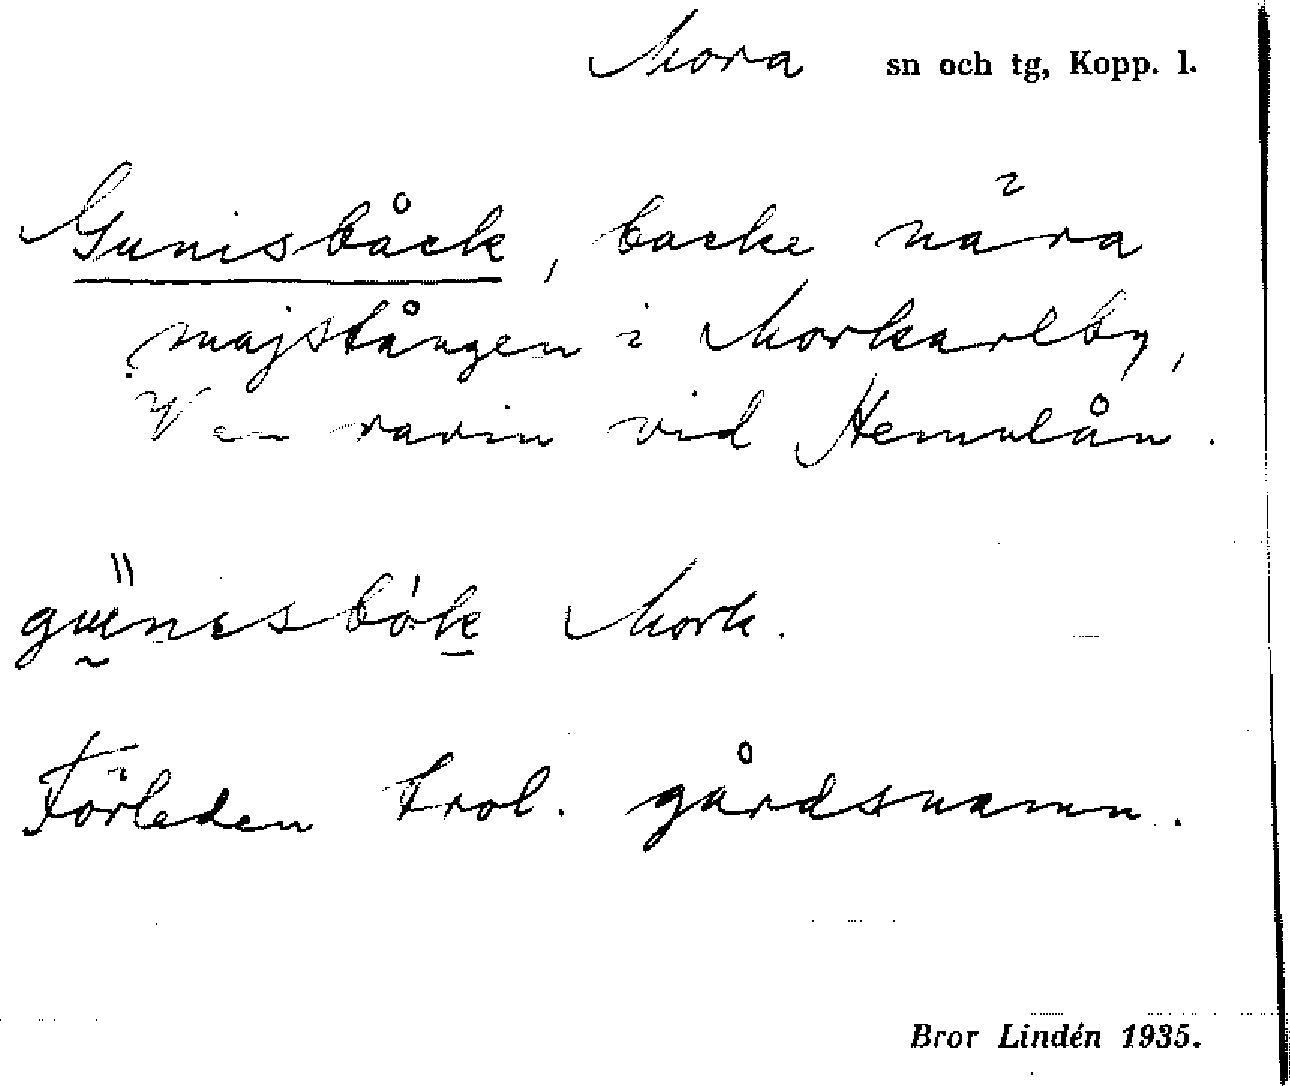 Mora sn och tg, Kopp. l.
Gunisbåck, backe nära
majstången i Morkarlby,
V en ravin vid Hemulån.
Mork.
Förleden trol. gårdsnamn.
Bror Lindén 1935.